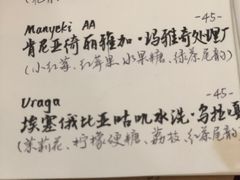 Manyeki AA -45-
肯尼亚绮丽雅加·玛雅奇处理厂
(小红莓、红苹果、水果糖、绿茶尾韵)
-45-
Uraga
埃塞俄比亚咕叽水洗·乌拉嘎
(茉莉花、柠檬硬糖、荔枝、红茶尾韵)